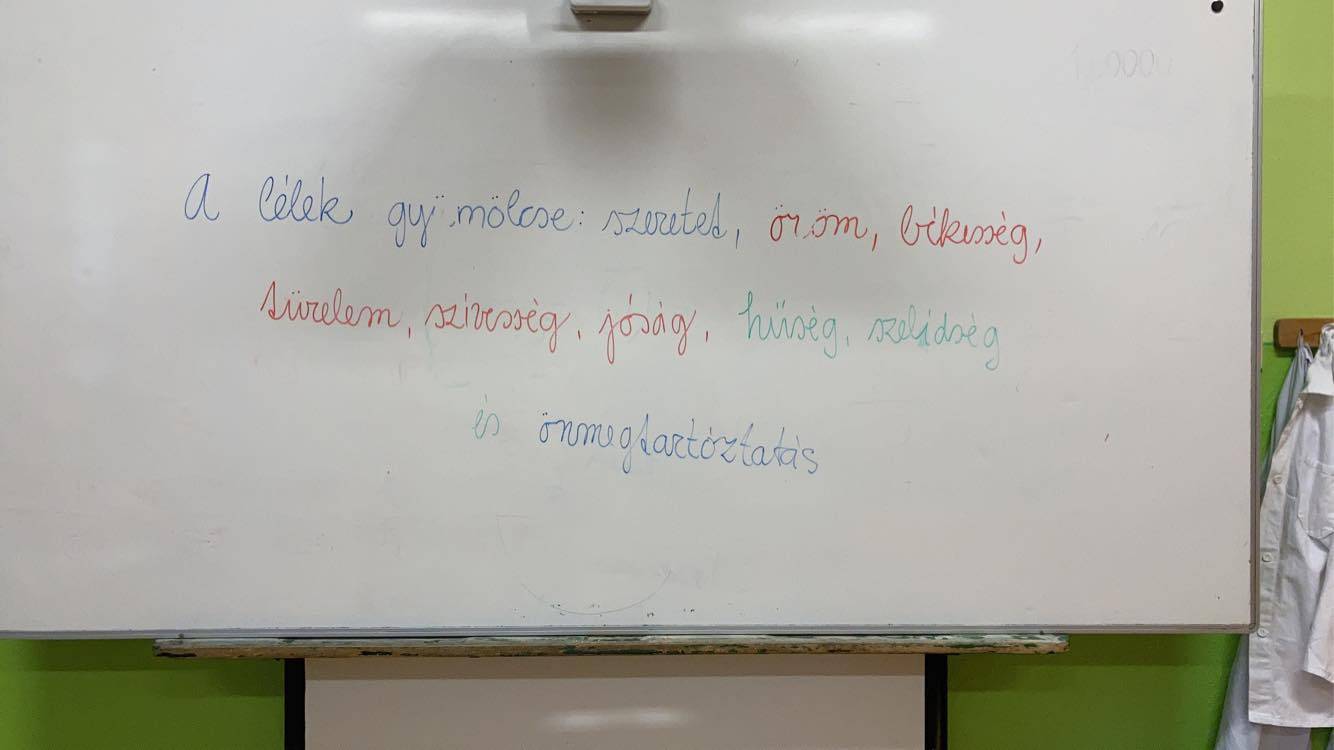 A lélek gyümölcse: szeretet, öröm, békesség,
türelem, szívesség, jóság, hűség, szelídség
és önmegtartóztatás